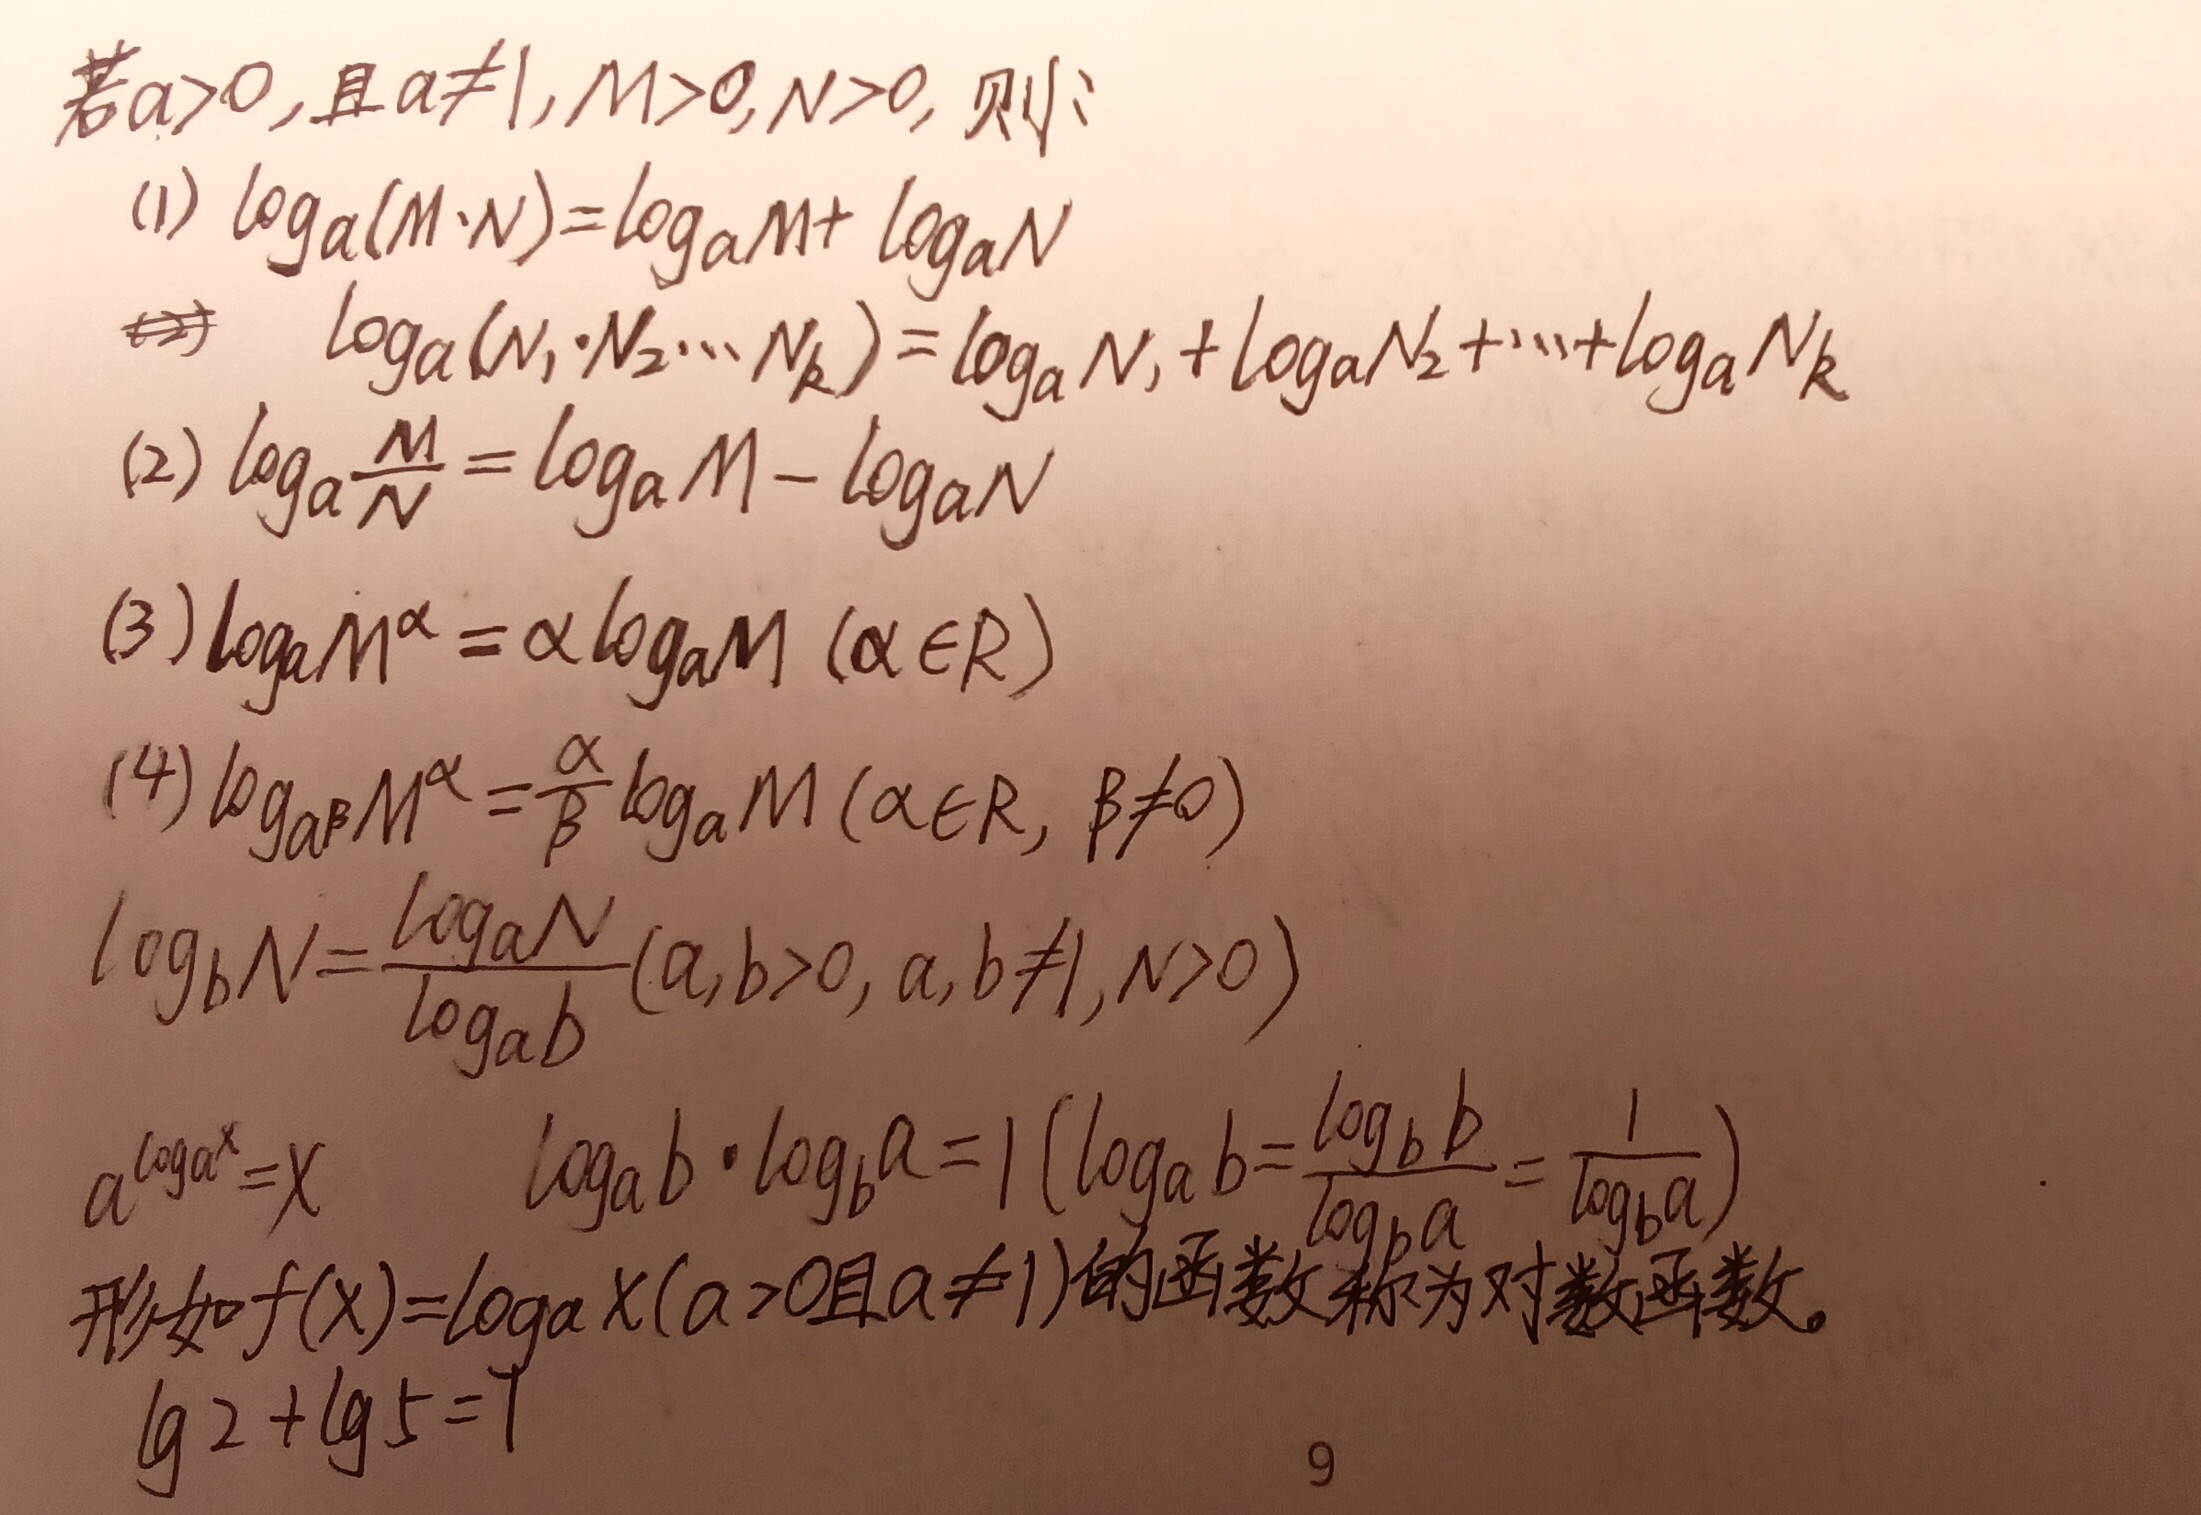 若a>0,且a≠1,M>0,N>0,则:
(1) logₐ(M·N)=logₐM+ logₐN
logₐ(N₁·N₂…Nₖ)=logₐN₁+logₐN₂+…+logₐNₖ
(2) logₐ\frac{M}{N}=logₐM-logₐN
(3) logₐM^α=αlogₐM (α∈R)
(4) log_{a^β}M^α=\frac{α}{β}logₐM (α∈R, β≠0)
log_b N=\frac{logₐN}{logₐb}(a,b>0, a,b≠1,N>0)
a^{logₐx}=x logₐb·log_b a=1(logₐb=\frac{log_b b}{log_b a}=\frac{1}{log_b a})
形如f(x)=logₐx(a>0且a≠1)的函数称为对数函数。
lg2+lg5=1
9